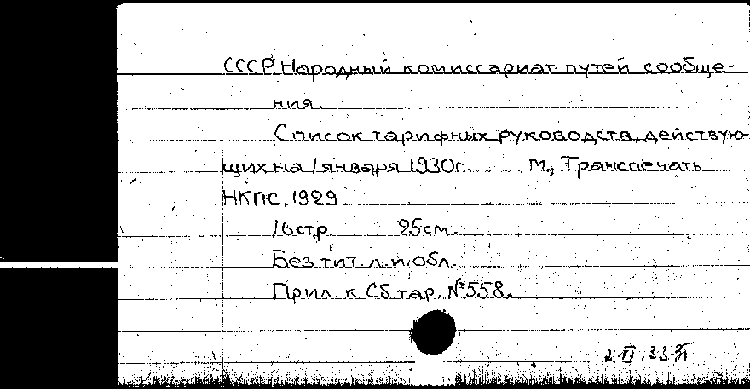 СССР. Народный комиссариат путей сообще-
ния
Список тарифных руководств, действую-
щих на 1 января 1930г. М., Транспечать
НКПС, 1929
16 стр. 25 см.
Без тит. л. и обл.
Прил. к Сб. тар. № 558.